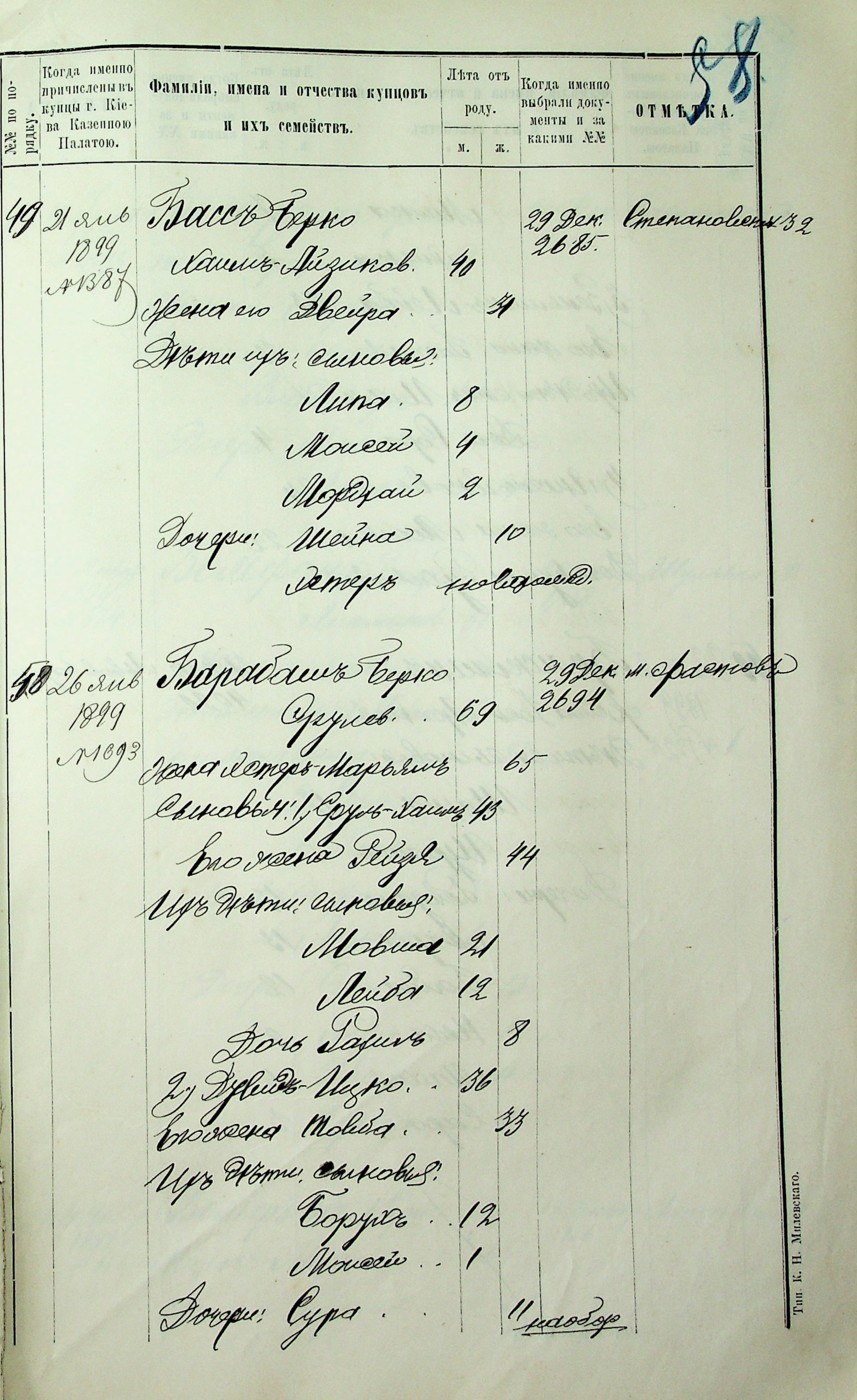 58.
№№ по по-
рядку.
Когда именно
причислены въ
купцы г. Кіе-
ва Казенною
Палатою.
Фамиліи, имена и отчества купцовъ
и ихъ семействъ.
Лѣта отъ
роду.
м. ж.
Когда именно
выбрали доку-
менты и за
какими №№
ОТМѢТКА.
49 21 янв Бассъ Берко 29 Дек. 32
1899 2685.
№1387 Хаимъ-Айзиков. 40
Жена его Двейра 31
Дѣти ихъ: сыновья:
Липа. 8
Моисей 4
Мордхай 2
Дочери: Шейна 10
Хстеръ новорожд.
50 26 янв Барабашъ Берко 29 Дек м. Фастовъ
1899 Срулев. 69 2694
№1693
Жена Хстеръ-Марьямъ 65
Сыновья: 1, Сруль-Хаимъ 43
Его жена Рейзя 44
Ихъ дѣти: сыновья:
Мовша 21
Лейба 12
Дочь Рахиль 8
2, Дувидъ-Ицко. 36
Его жена Товба. 33
Ихъ дѣти: сыновья:
Борухъ 12
Моисей 1
Дочери: Сура 11
наобор
Тип. К. Н. Милевскаго.